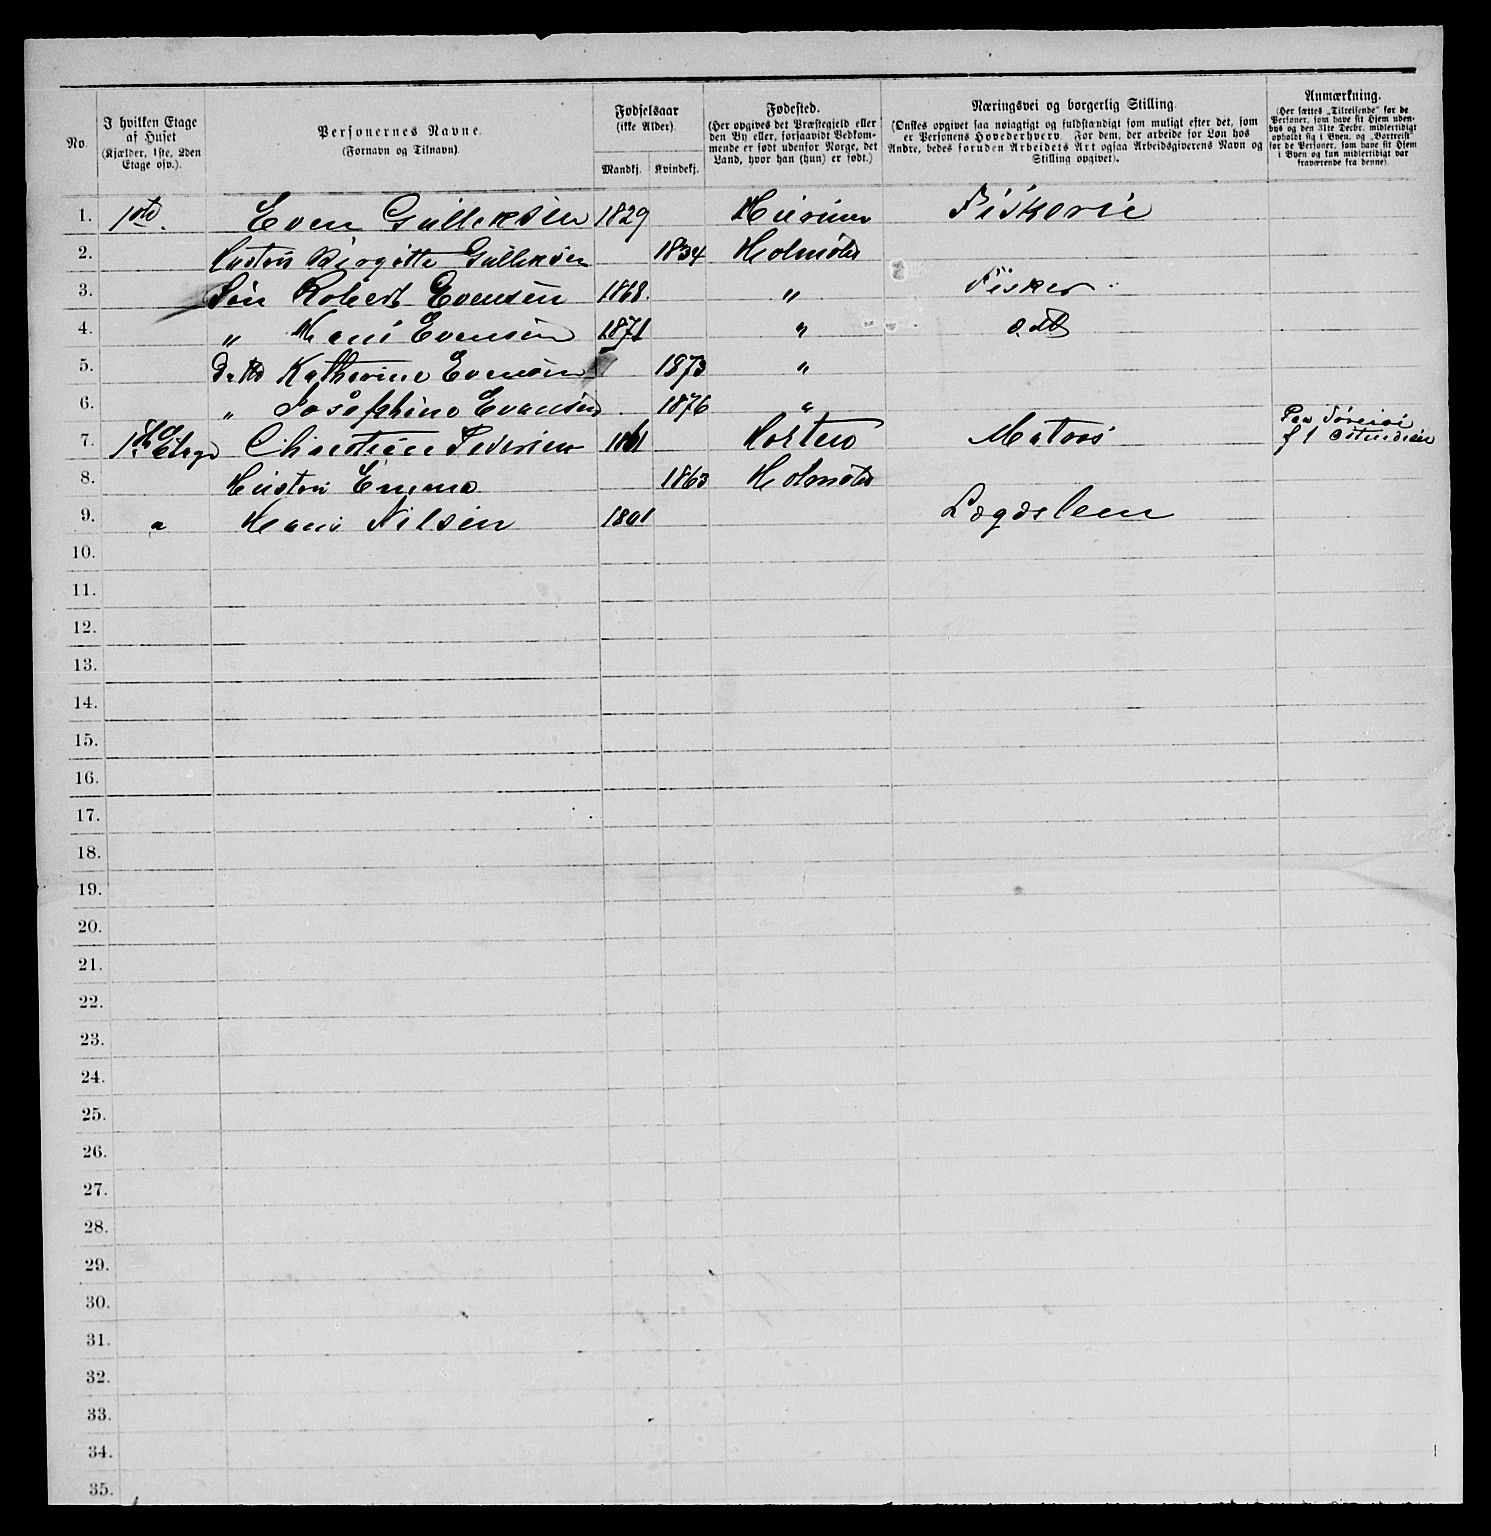 No.
I hvilken Etage
af Huset
(Kjælder, 1ste, 2den
Etage osv.).
Personernes Navne.
(Fornavn og Tilnavn).
Fødselsaar
(ikke Alder).
Mandkj. Kvindekj.
Fødested.
(Her opgives det Præstegjeld eller
den By eller, forsaavidt Vedkom-
mende er født udenfor Norge, det
Land, hvor han (hun) er født.)
Næringsvei og borgerlig Stilling.
(Ønskes opgivet saa nøiagtigt og fuldstændigt som muligt efter det, som
er Personens Hovederhverv. For dem, der arbeide for Løn hos
Andre, bedes foruden Arbeidets Art ogsaa Arbeidsgiverens Navn og
Stilling opgivet).
Anmærkning.
(Her sættes „Tilreisende“ for de
Personer, som have sit Hjem uden-
bys og den 31te Decbr. midlertidigt
opholdt sig i Byen, og „Bortreist“
for de Personer, som have sit Hjem
i Byen og kun midlertidigt var
fraværende fra denne).
1. 1ste. Even Gulleksen 1829 Hurum Fiskerie
2. Hustru Birgitte Gulleksen 1834 Holmsbo
3. Søn Robert Evensen 1868. " Fisker.
4. " Hans Evensen 1871 "
5. Katherine Evensen 1873 "
6. " Josephine Evensen 1876 "
7. 1ste Etage Christian Pedersen 1861 Horten Matros Paa
8. Hustru Emma 1863 Holmsbo
9. " Hans Nilsen 1801 Lægdslem
10.
11.
12.
13.
14.
15.
16.
17.
18.
19.
20.
21.
22.
23.
24.
25.
26.
27.
28.
29.
30.
31.
32.
33.
34.
35.